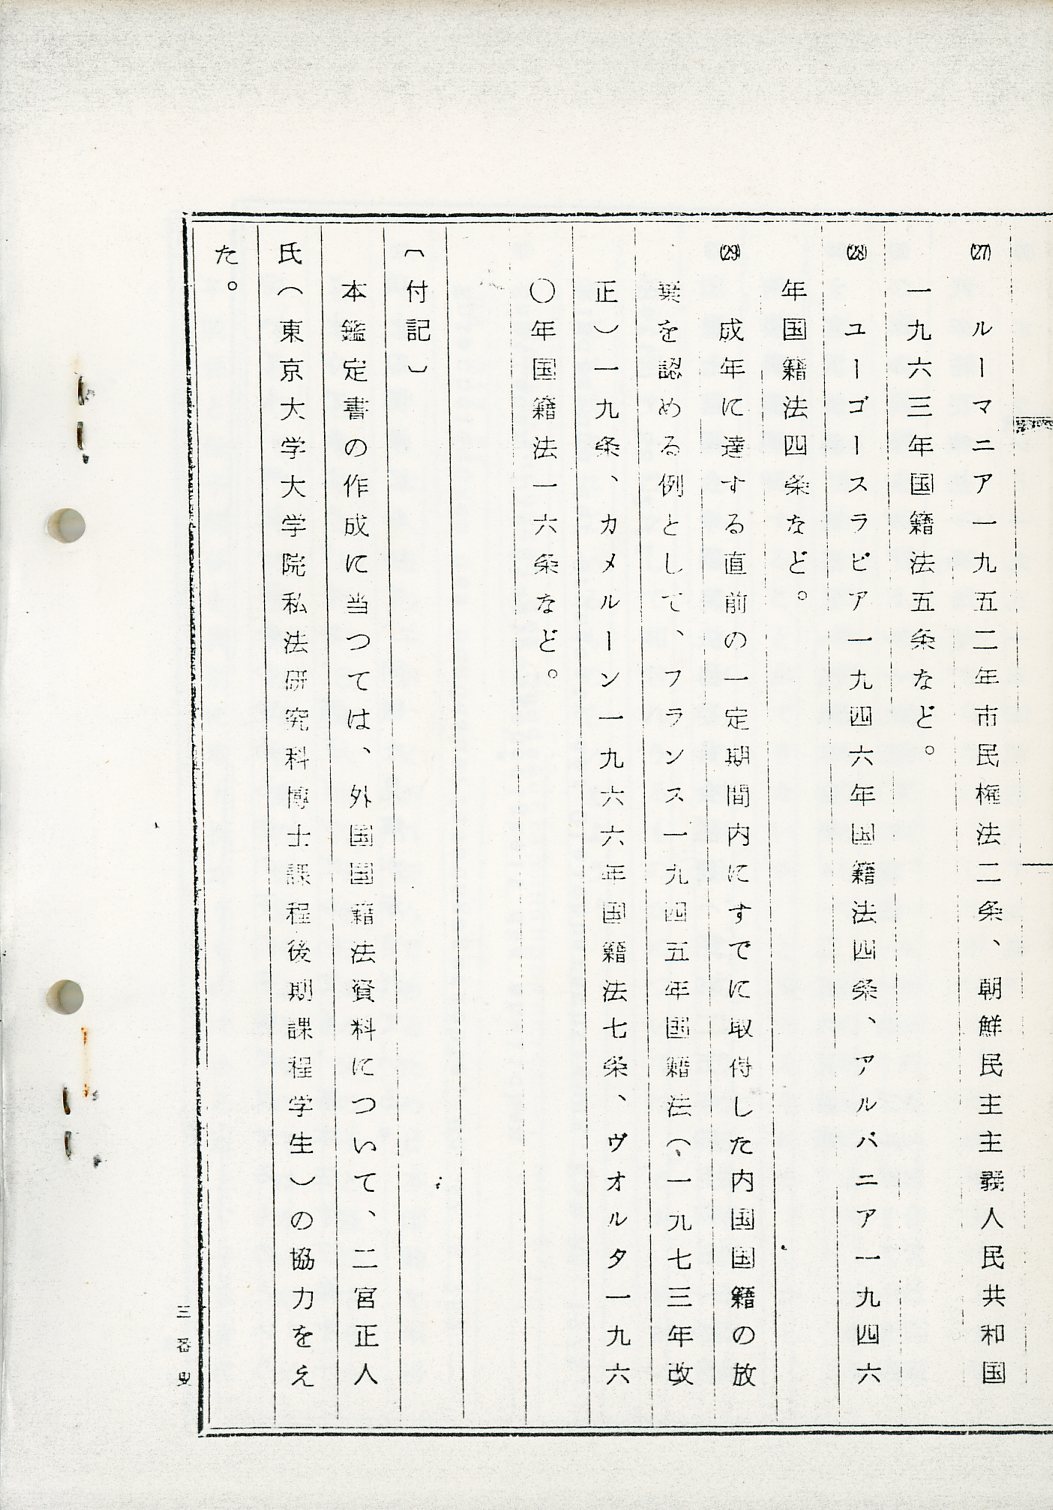 (27) ルーマニア一九五二年市民権法二条、朝鮮民主主義人民共和国
一九六三年国籍法五条など。
(28) ユーゴースラビア一九四六年国籍法四条、アルバニア一九四六
年国籍法四条など。
(29) 成年に達する直前の一定期間内にすでに取得した内国国籍の放
棄を認める例として、フランス一九四五年国籍法(、一九七三年改
正)一九条、カメルーン一九六六年国籍法七条、ヴオルタ一九六
〇年国籍法一六条など。
〔付記〕
本鑑定書の作成に当つては、外国国籍法資料について、二宮正人
氏(東京大学大学院私法研究科博士課程後期課程学生)の協力をえ
た。
三番叟